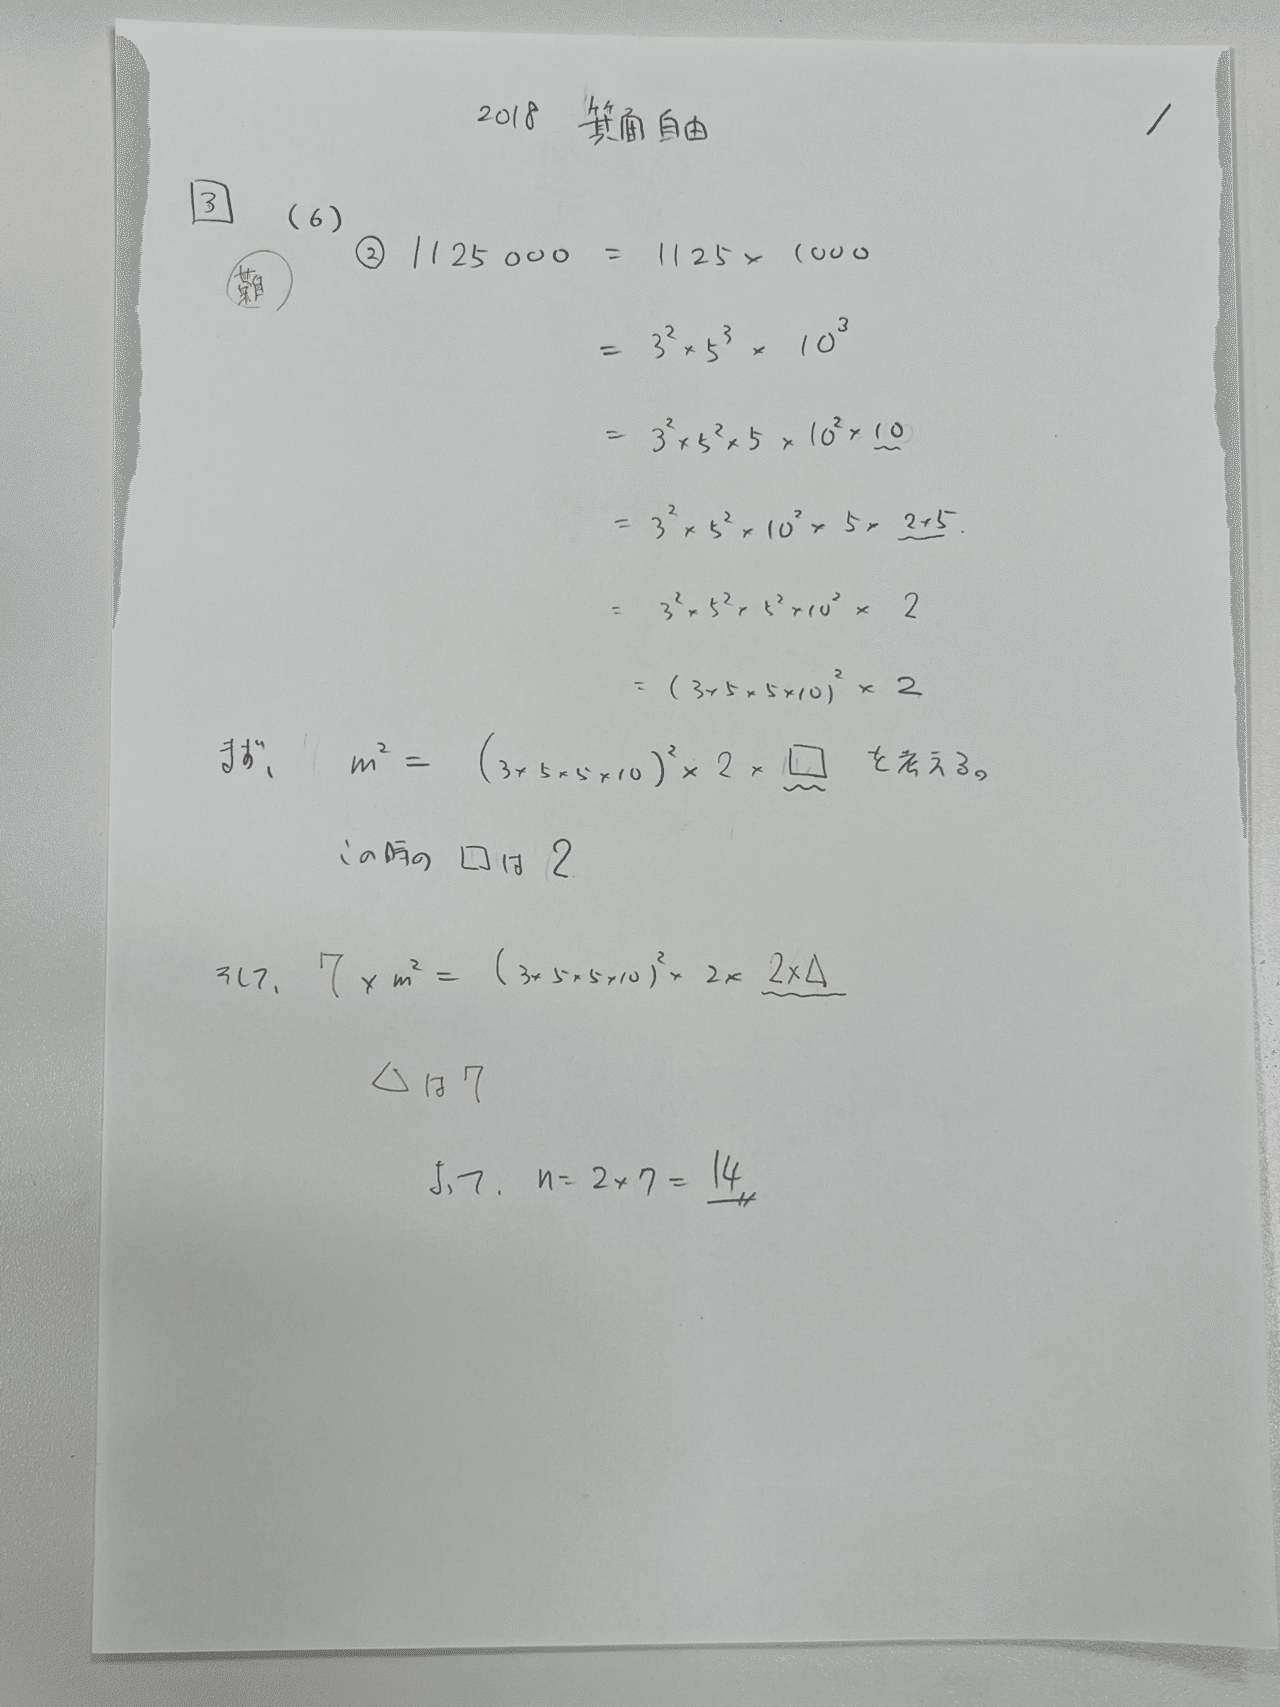 2018 箕面自由
/
3 (6)
難
② 1125000 = 1125 × 1000
= 3² × 5³ × 10³
= 3² × 5² × 5 × 10² × 10
= 3² × 5² × 10² × 5 × 2×5.
= 3² × 5² × 5² × 10² × 2
= (3×5×5×10)² × 2
まず、 m² = (3×5×5×10)² × 2 × □ を考える。
この時の □は 2
そして、 7 × m² = (3×5×5×10)² × 2 × 2×△
△は7
よって、 n = 2×7 = 14